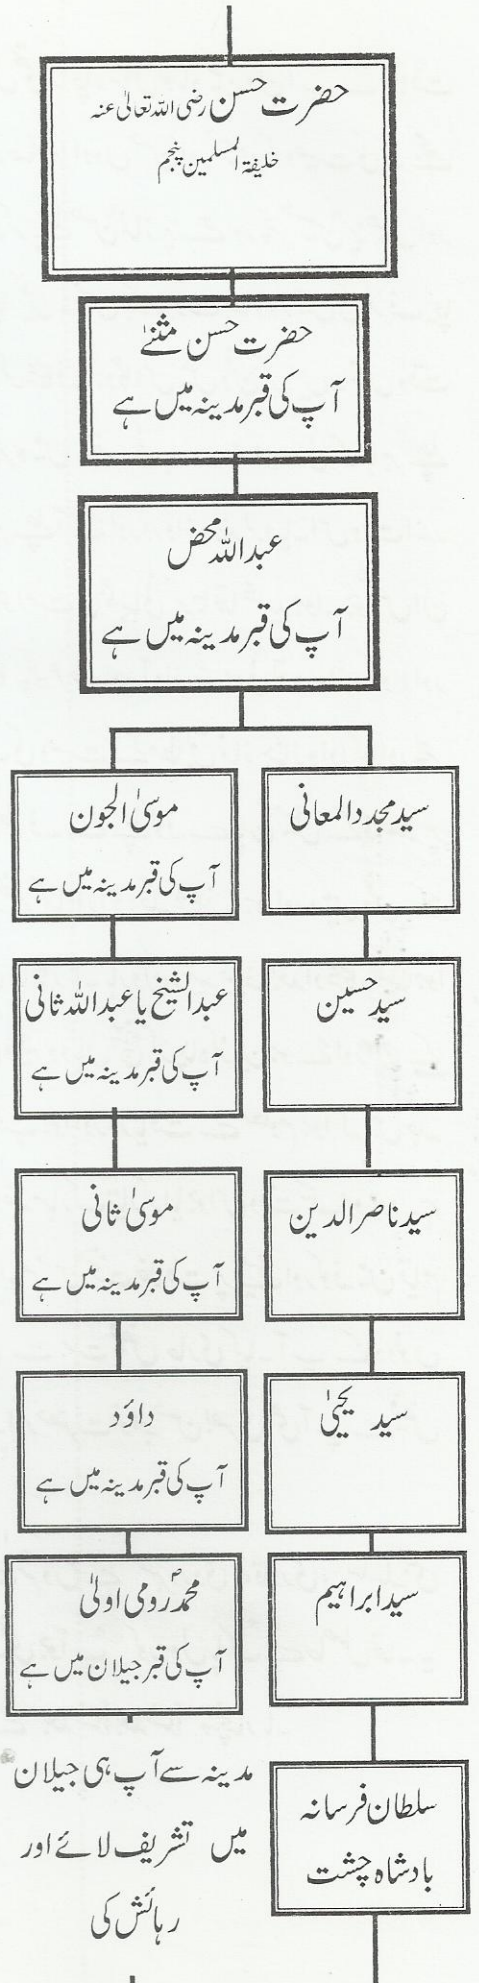 حضرت حسن رضی اللہ تعالیٰ عنہ
خلیفۃ المسلمین پنجم
حضرت حسن مثنےٰ
آپ کی قبر مدینہ میں ہے
عبداللہ محض
آپ کی قبر مدینہ میں ہے
سید مجدد المعانی
سید حسین
سید ناصر الدین
سید یحییٰ
سید ابراہیم
سلطان فرسانہ
بادشاہ چشت
موسیٰ الجون
آپ کی قبر مدینہ میں ہے
عبدالشیخ یا عبداللہ ثانی
آپ کی قبر مدینہ میں ہے
موسیٰ ثانی
آپ کی قبر مدینہ میں ہے
داؤد
آپ کی قبر مدینہ میں ہے
محمدؐ رومی اولیٰ
آپ کی قبر جیلان میں ہے
مدینہ سے آپ ہی جیلان
میں تشریف لائے اور
رہائش کی